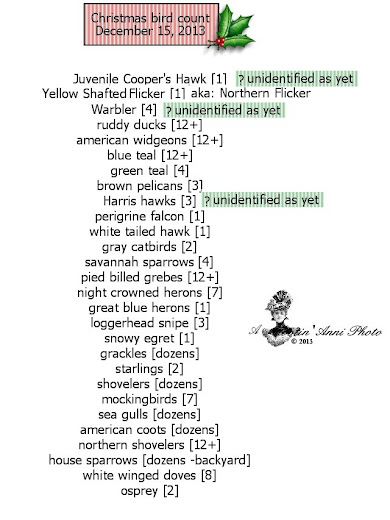 Christmas bird count
December 15, 2013
Juvenile Cooper's Hawk [1] ? unidentified as yet
Yellow Shafted Flicker [1] aka: Northern Flicker
Warbler [4] ? unidentified as yet
ruddy ducks [12+]
american widgeons [12+]
blue teal [12+]
green teal [4]
brown pelicans [3]
Harris hawks [3] ? unidentified as yet
perigrine falcon [1]
white tailed hawk [1]
gray catbirds [2]
savannah sparrows [4]
pied billed grebes [12+]
night crowned herons [7]
great blue herons [1]
loggerhead snipe [3]
snowy egret [1]
grackles [dozens]
starlings [2]
shovelers [dozens]
mockingbirds [7]
sea gulls [dozens]
american coots [dozens]
northern shovelers [12+]
house sparrows [dozens -backyard]
white winged doves [8]
osprey [2]
A Anni Photo
© 2013